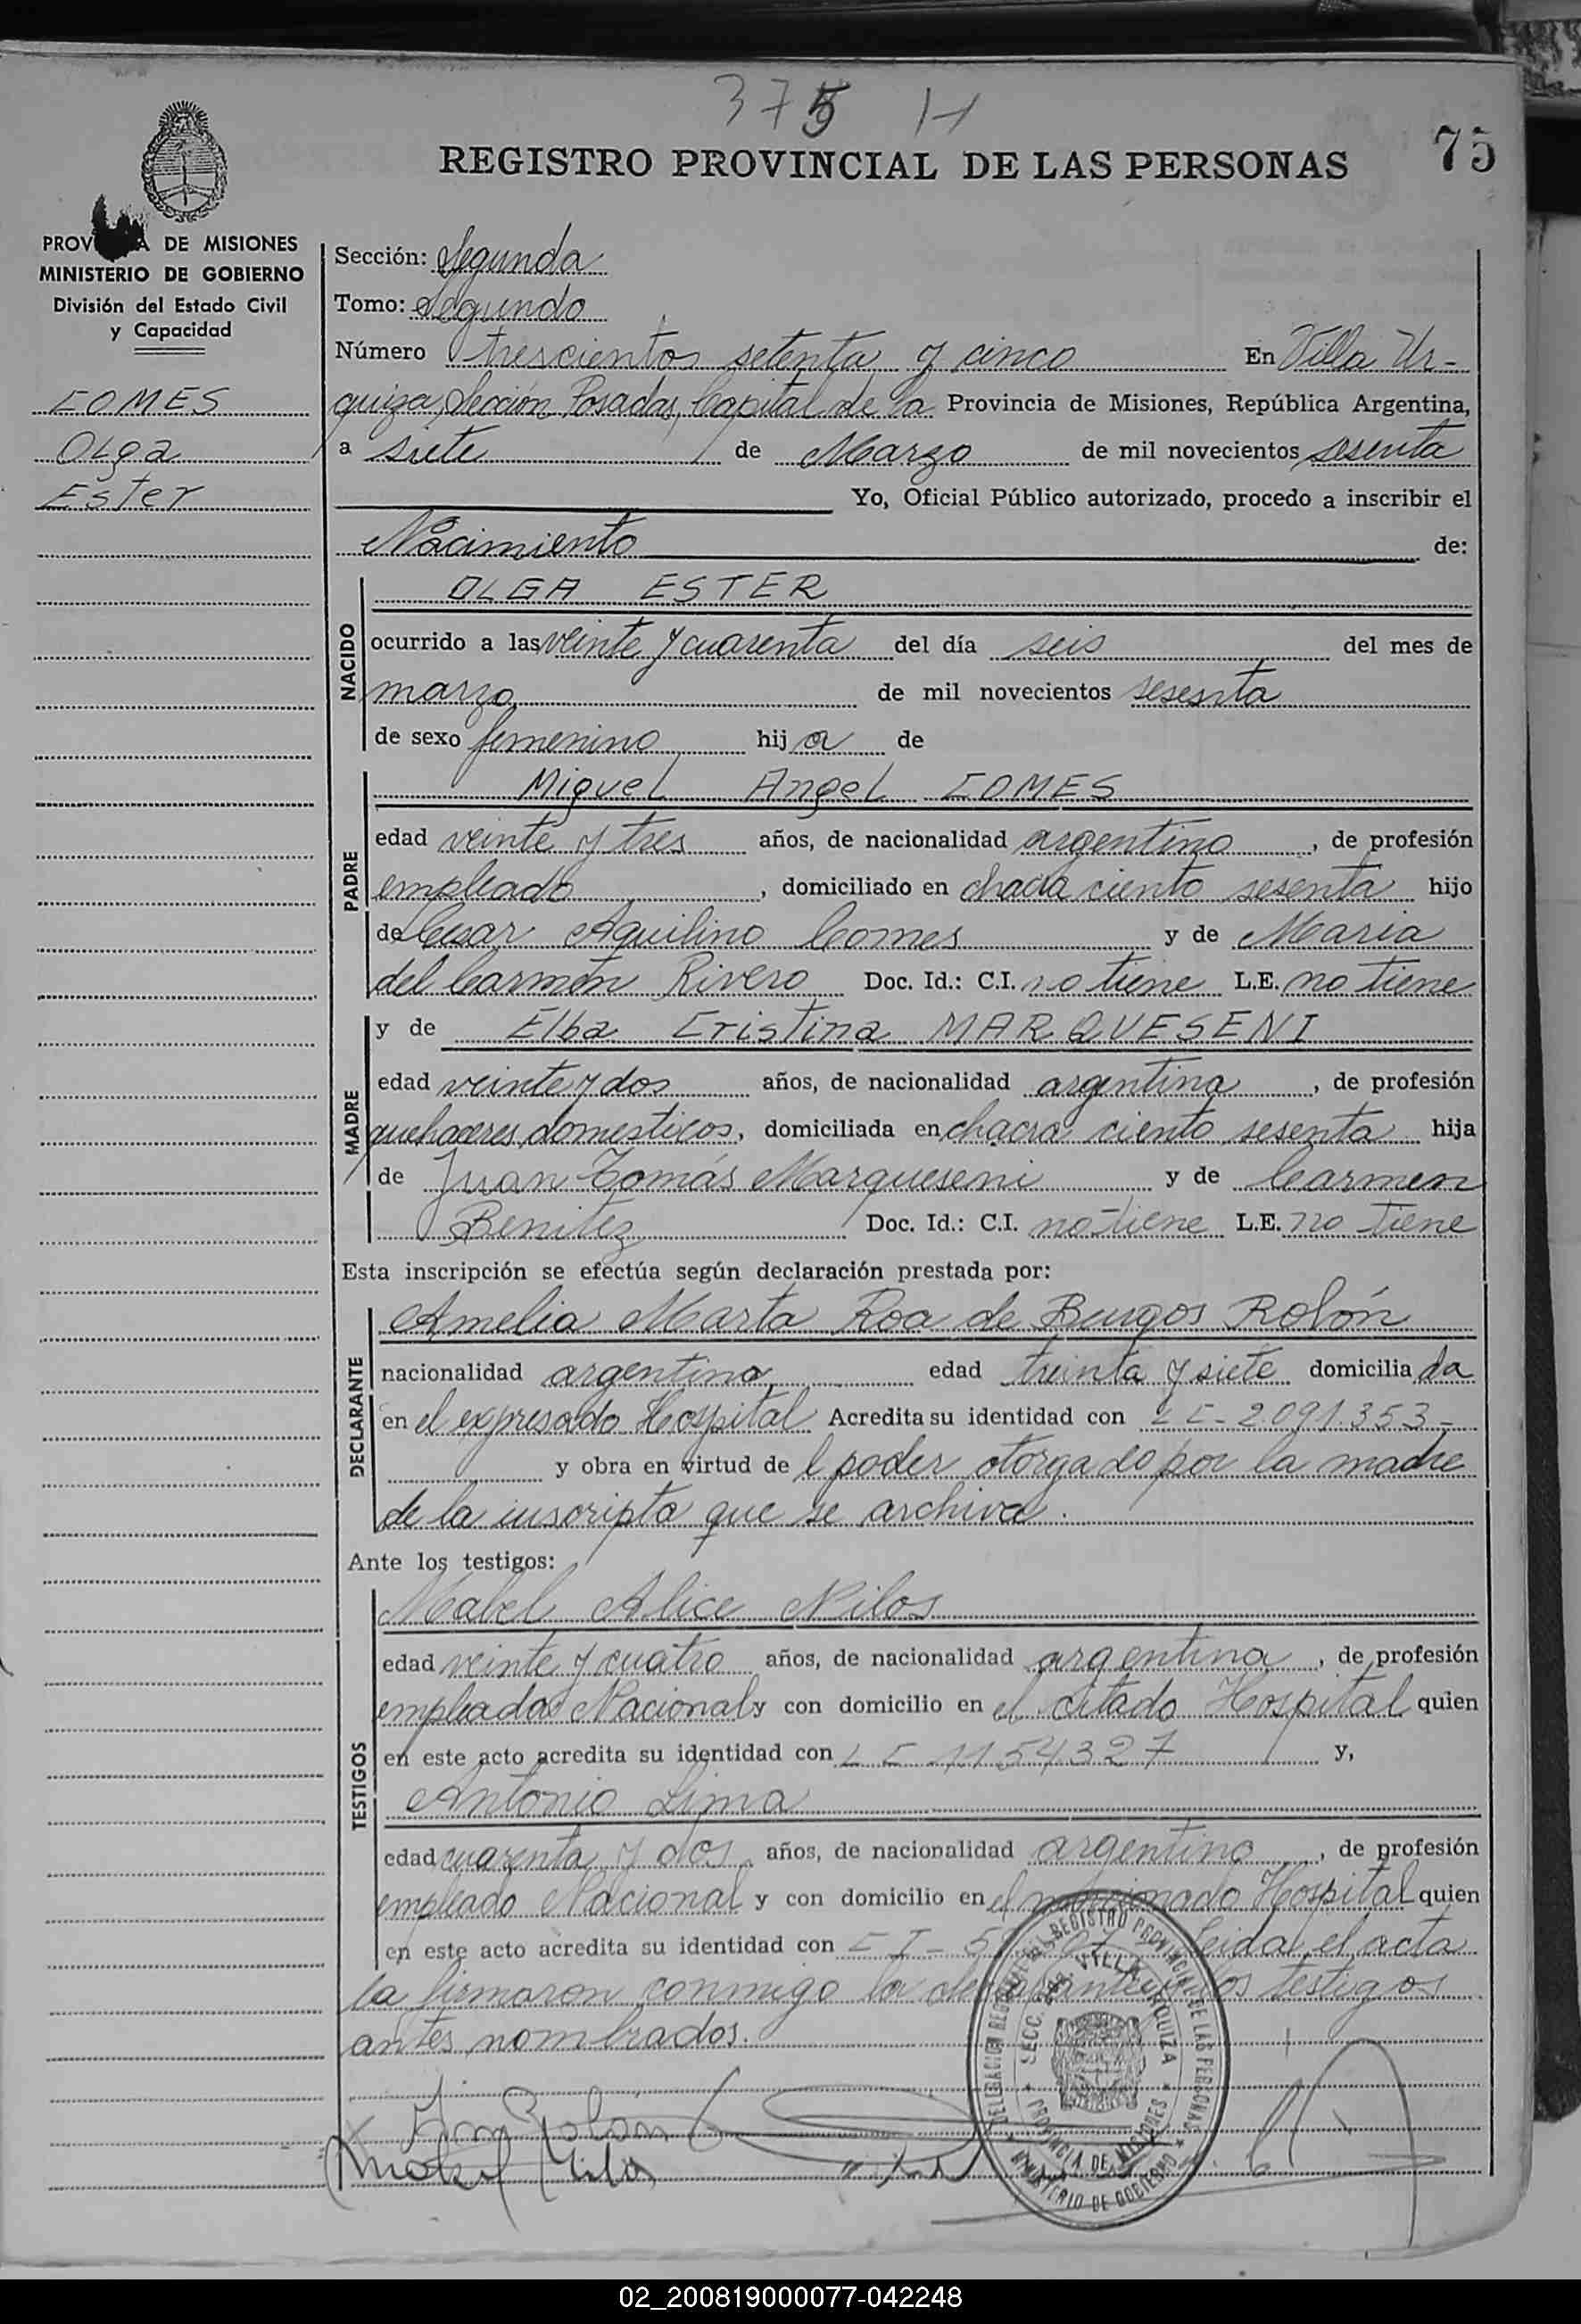 375 H
REGISTRO PROVINCIAL DE LAS PERSONAS
75
DE MISIONES
MINISTERIO DE GOBIERNO
División del Estado Civil
y Capacidad
COMES
Olga
Ester
Sección: Segunda
Tomo: Segundo
Número trescientos setenta y cinco En Villa Ur-
quiza, Sección Posadas, Capital de la Provincia de Misiones, República Argentina,
a siete de Marzo de mil novecientos sesenta
Yo, Oficial Público autorizado, procedo a inscribir el
Nacimiento de:
NACIDO
OLGA ESTER
ocurrido a las veinte y cuarenta del día seis del mes de
marzo de mil novecientos sesenta
de sexo femenino hija de
PADRE
Miguel Angel COMES
edad veinte y tres años, de nacionalidad argentino, de profesión
empleado, domiciliado en chacra ciento sesenta hijo
de Cesar Aquilino Comes y de Maria
del Carmen Rivero Doc. Id.: C.I. no tiene L.E. no tiene
MADRE
y de Elba Cristina MARQUESENI
edad veinte y dos años, de nacionalidad argentina, de profesión
quehaceres domesticos, domiciliada en chacra ciento sesenta hija
de Juan Tomás Marqueseni y de Carmen
Benitez Doc. Id.: C.I. no tiene L.E. no tiene
Esta inscripción se efectúa según declaración prestada por:
DECLARANTE
Amelia Marta Roa de Burgos Rolón
nacionalidad argentina edad treinta y siete domiciliada
en el expresado Hospital Acredita su identidad con LC-2.091.353-
y obra en virtud de l poder otorgado por la madre
de la inscripta que se archiva.
Ante los testigos:
TESTIGOS
Mabel Alice Nilos
edad veinte y cuatro años, de nacionalidad argentina, de profesión
empleada Nacional y con domicilio en el citado Hospital quien
en este acto acredita su identidad con LC 1154327 y,
Antonio Lima
edad cuarenta y dos años, de nacionalidad argentino, de profesión
empleado Nacional y con domicilio en el mencionado Hospital quien
en este acto acredita su identidad con CI- Leida el acta
la firmaron conmigo la declarante y los testigos
antes nombrados.
REGISTRO PROVINCIAL DE LAS PERSONAS
SECC. VILLA URQUIZA
PROVINCIA DE MISIONES
MINISTERIO DE GOBIERNO
02_200819000077-042248